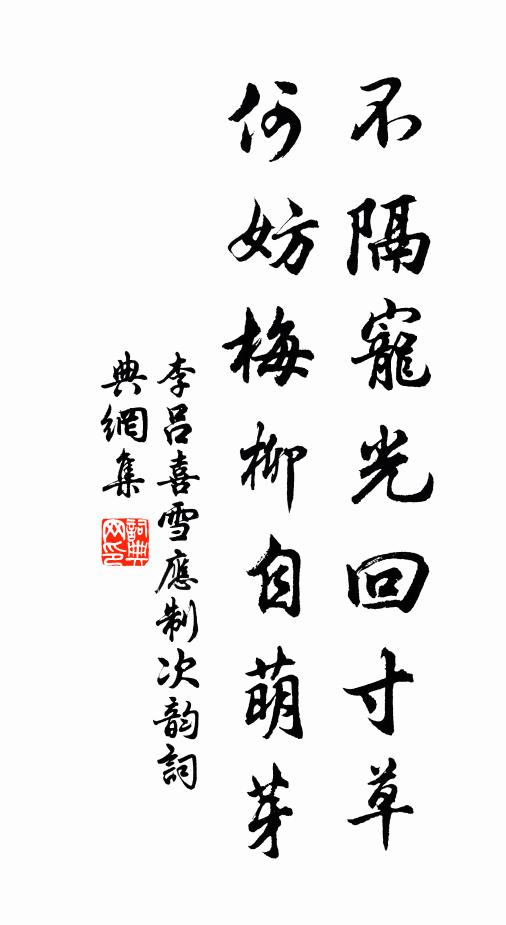 不隔寵光回寸草
何妨梅柳自萌芽
李呂喜雪應制次韵詞
典網集
詞典網印